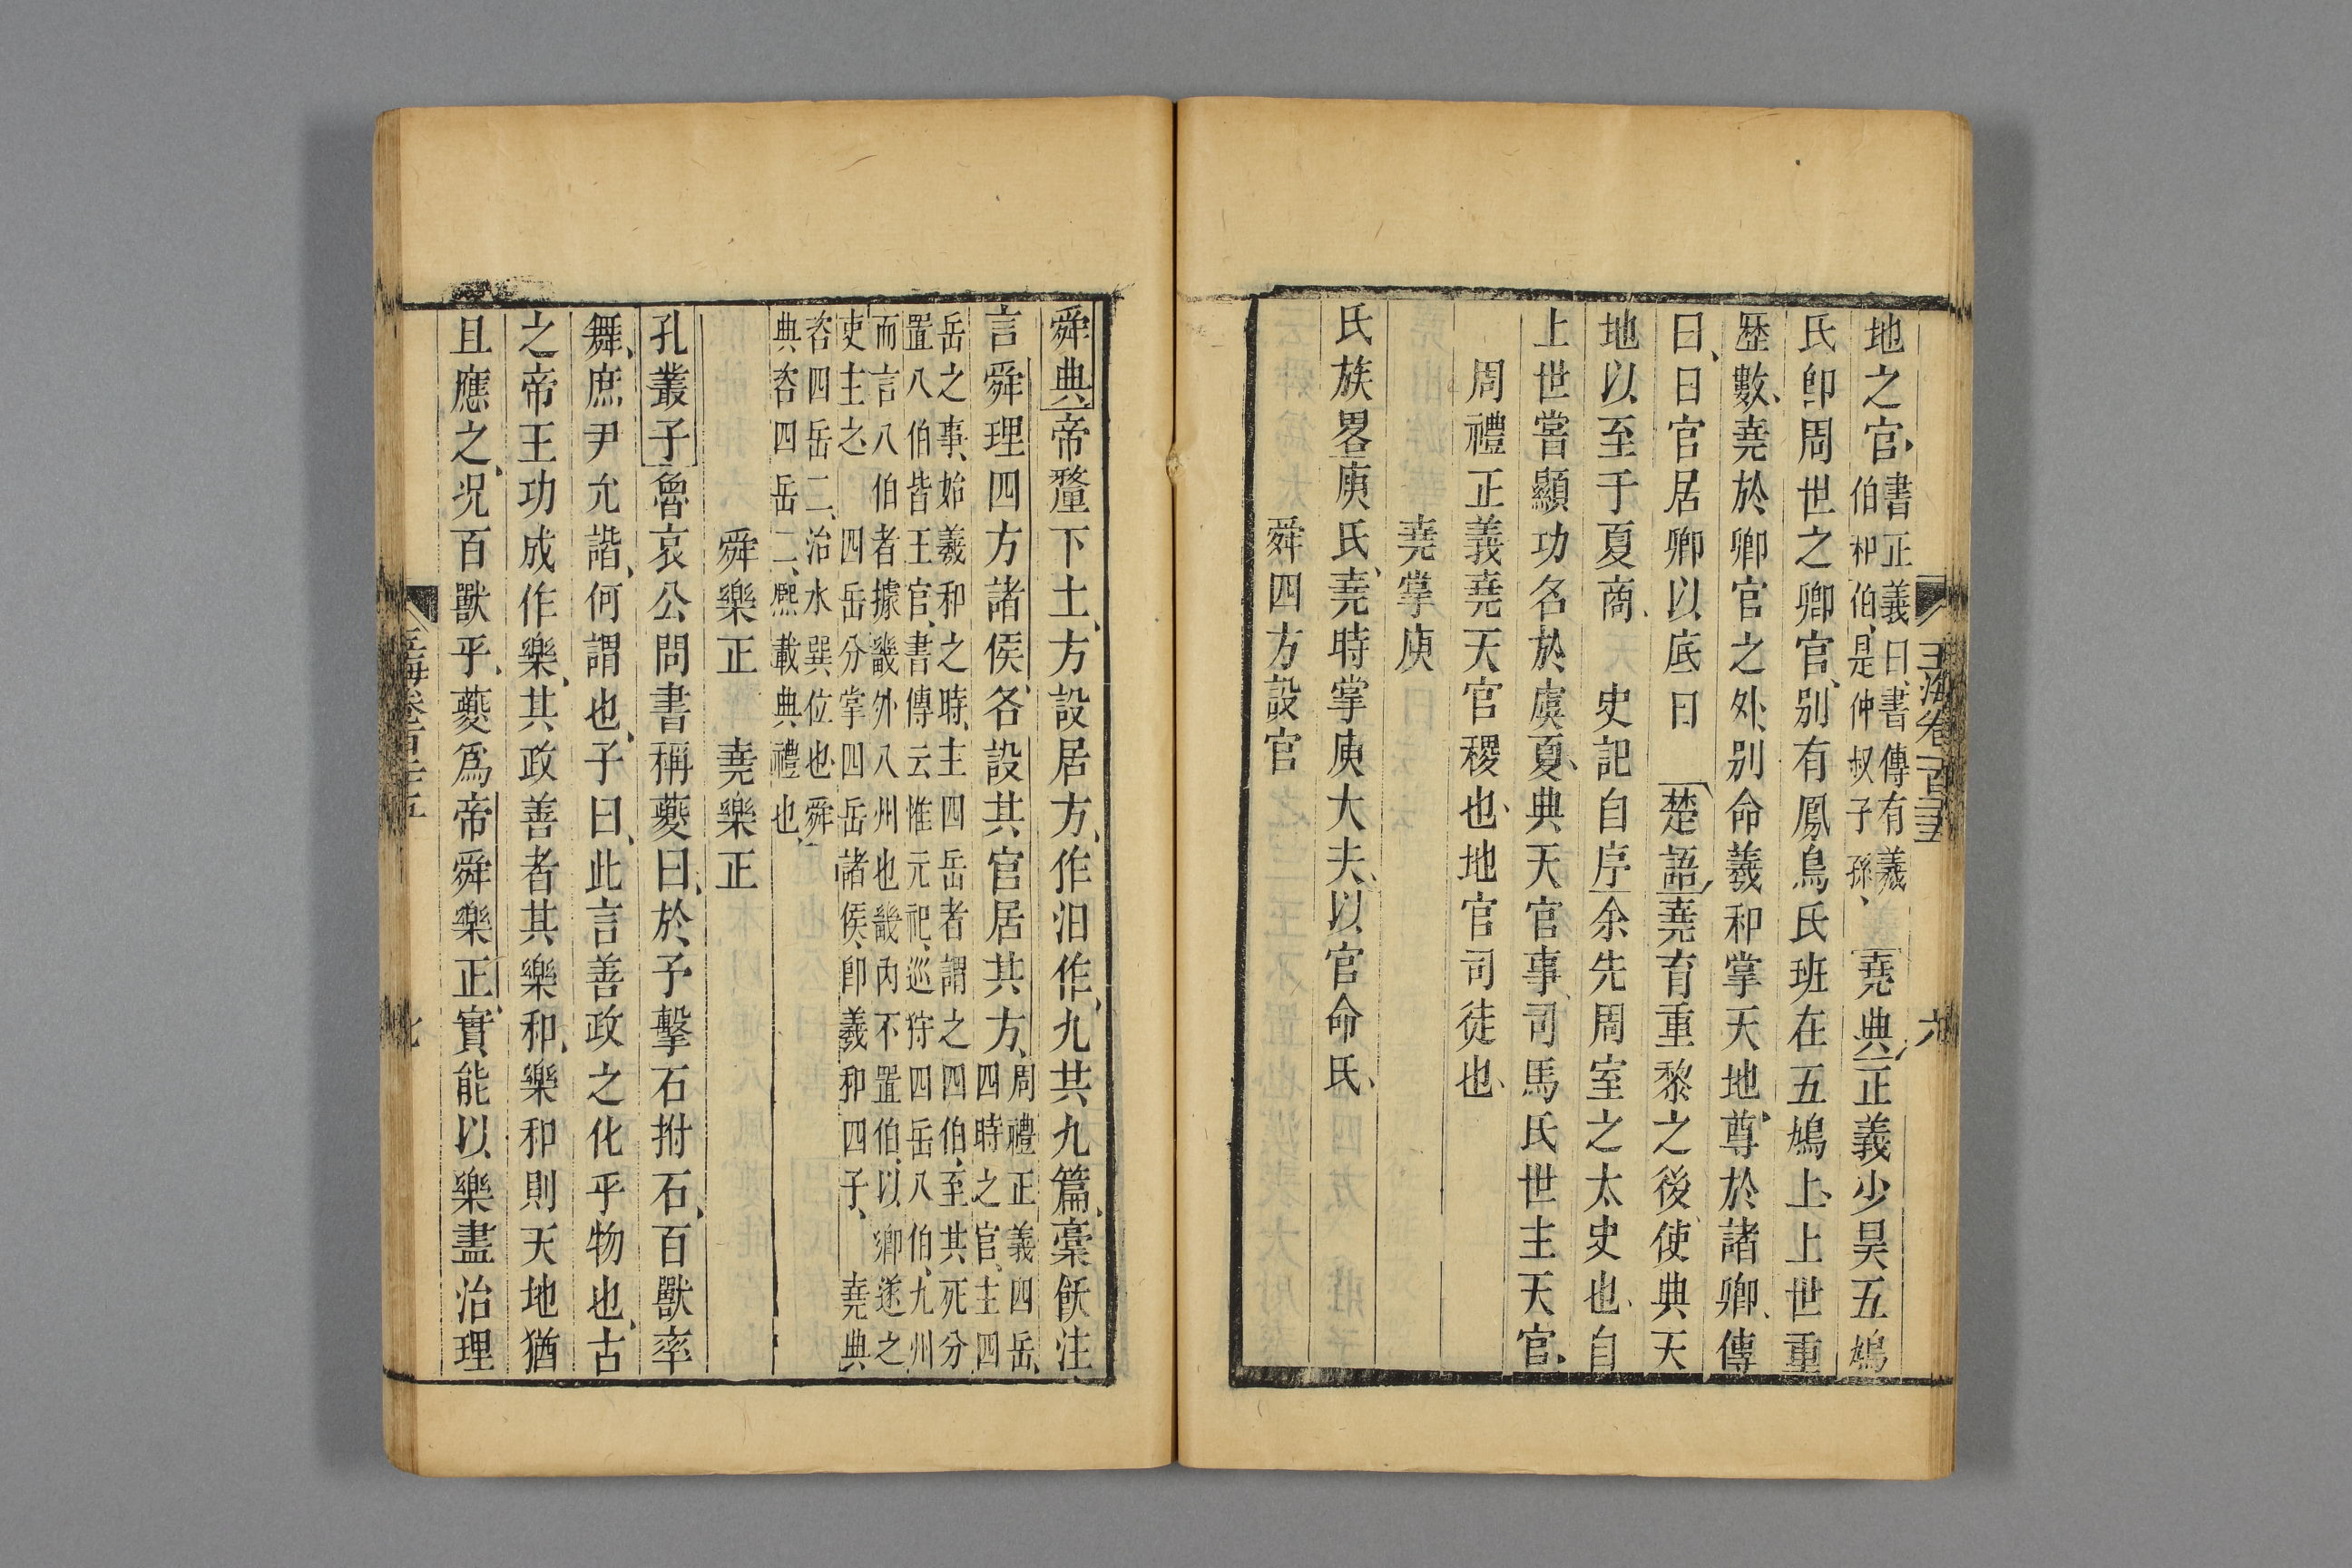 玉海卷一百二十五
六
地之官書正義曰書傳有羲
伯和伯是仲叔子孫堯典正義少昊五鳩
氏卽周世之卿官别有鳳鳥氏班在五鳩上上世重
歷數堯於卿官之外别命羲和掌天地尊於諸卿傳
曰日官居卿以底日楚語堯育重黎之後使典天
地以至于夏商史記自序余先周室之太史也自
上世嘗顯功名於虞夏典天官事司馬氏世主天官
周禮正義堯天官稷也地官司徒也
堯掌庾
氏族畧庾氏堯時掌庾大夫以官命氏
舜四方設官
舜典帝釐下土方設居方作汩作九共九篇槀飫注
言舜理四方諸侯各設其官居其方周禮正義四岳
四時之官主四
岳之事始羲和之時主四岳者謂之四伯至其死分
置八伯皆王官書傳云惟元祀巡狩四岳八伯九州
而言八伯者據畿外八州也畿內不置伯以卿遂之
吏主之四岳分掌四岳諸侯卽羲和四子堯典
咨四岳二治水巽位也舜
典咨四岳二熙載典禮也
舜樂正堯樂正
孔叢子魯哀公問書稱夔曰於予擊石拊石百獸率
舞庶尹允諧何謂也子曰此言善政之化乎物也古
之帝王功成作樂其政善者其樂和樂和則天地猶
且應之况百獸乎夔爲帝舜樂正實能以樂盡治理
玉海卷一百二十五
七